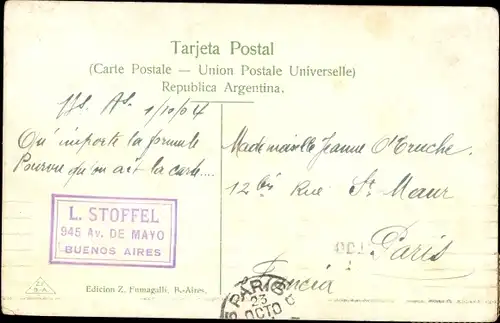 Tarjeta Postal
(Carte Postale — Union Postale Universelle)
Republica Argentina.
Bs. As. 1/10/04
Qu'importe la formule
Pourvu qu'on ait la carte....
Mademoiselle Jeanne O'Truche.
12 bis Rue St. Maur
Paris
Francia
L. STOFFEL
945 AV. DE MAYO
BUENOS AIRES
Edicion Z. Fumagalli, B.-Aires.
PARIS
23
OCTO